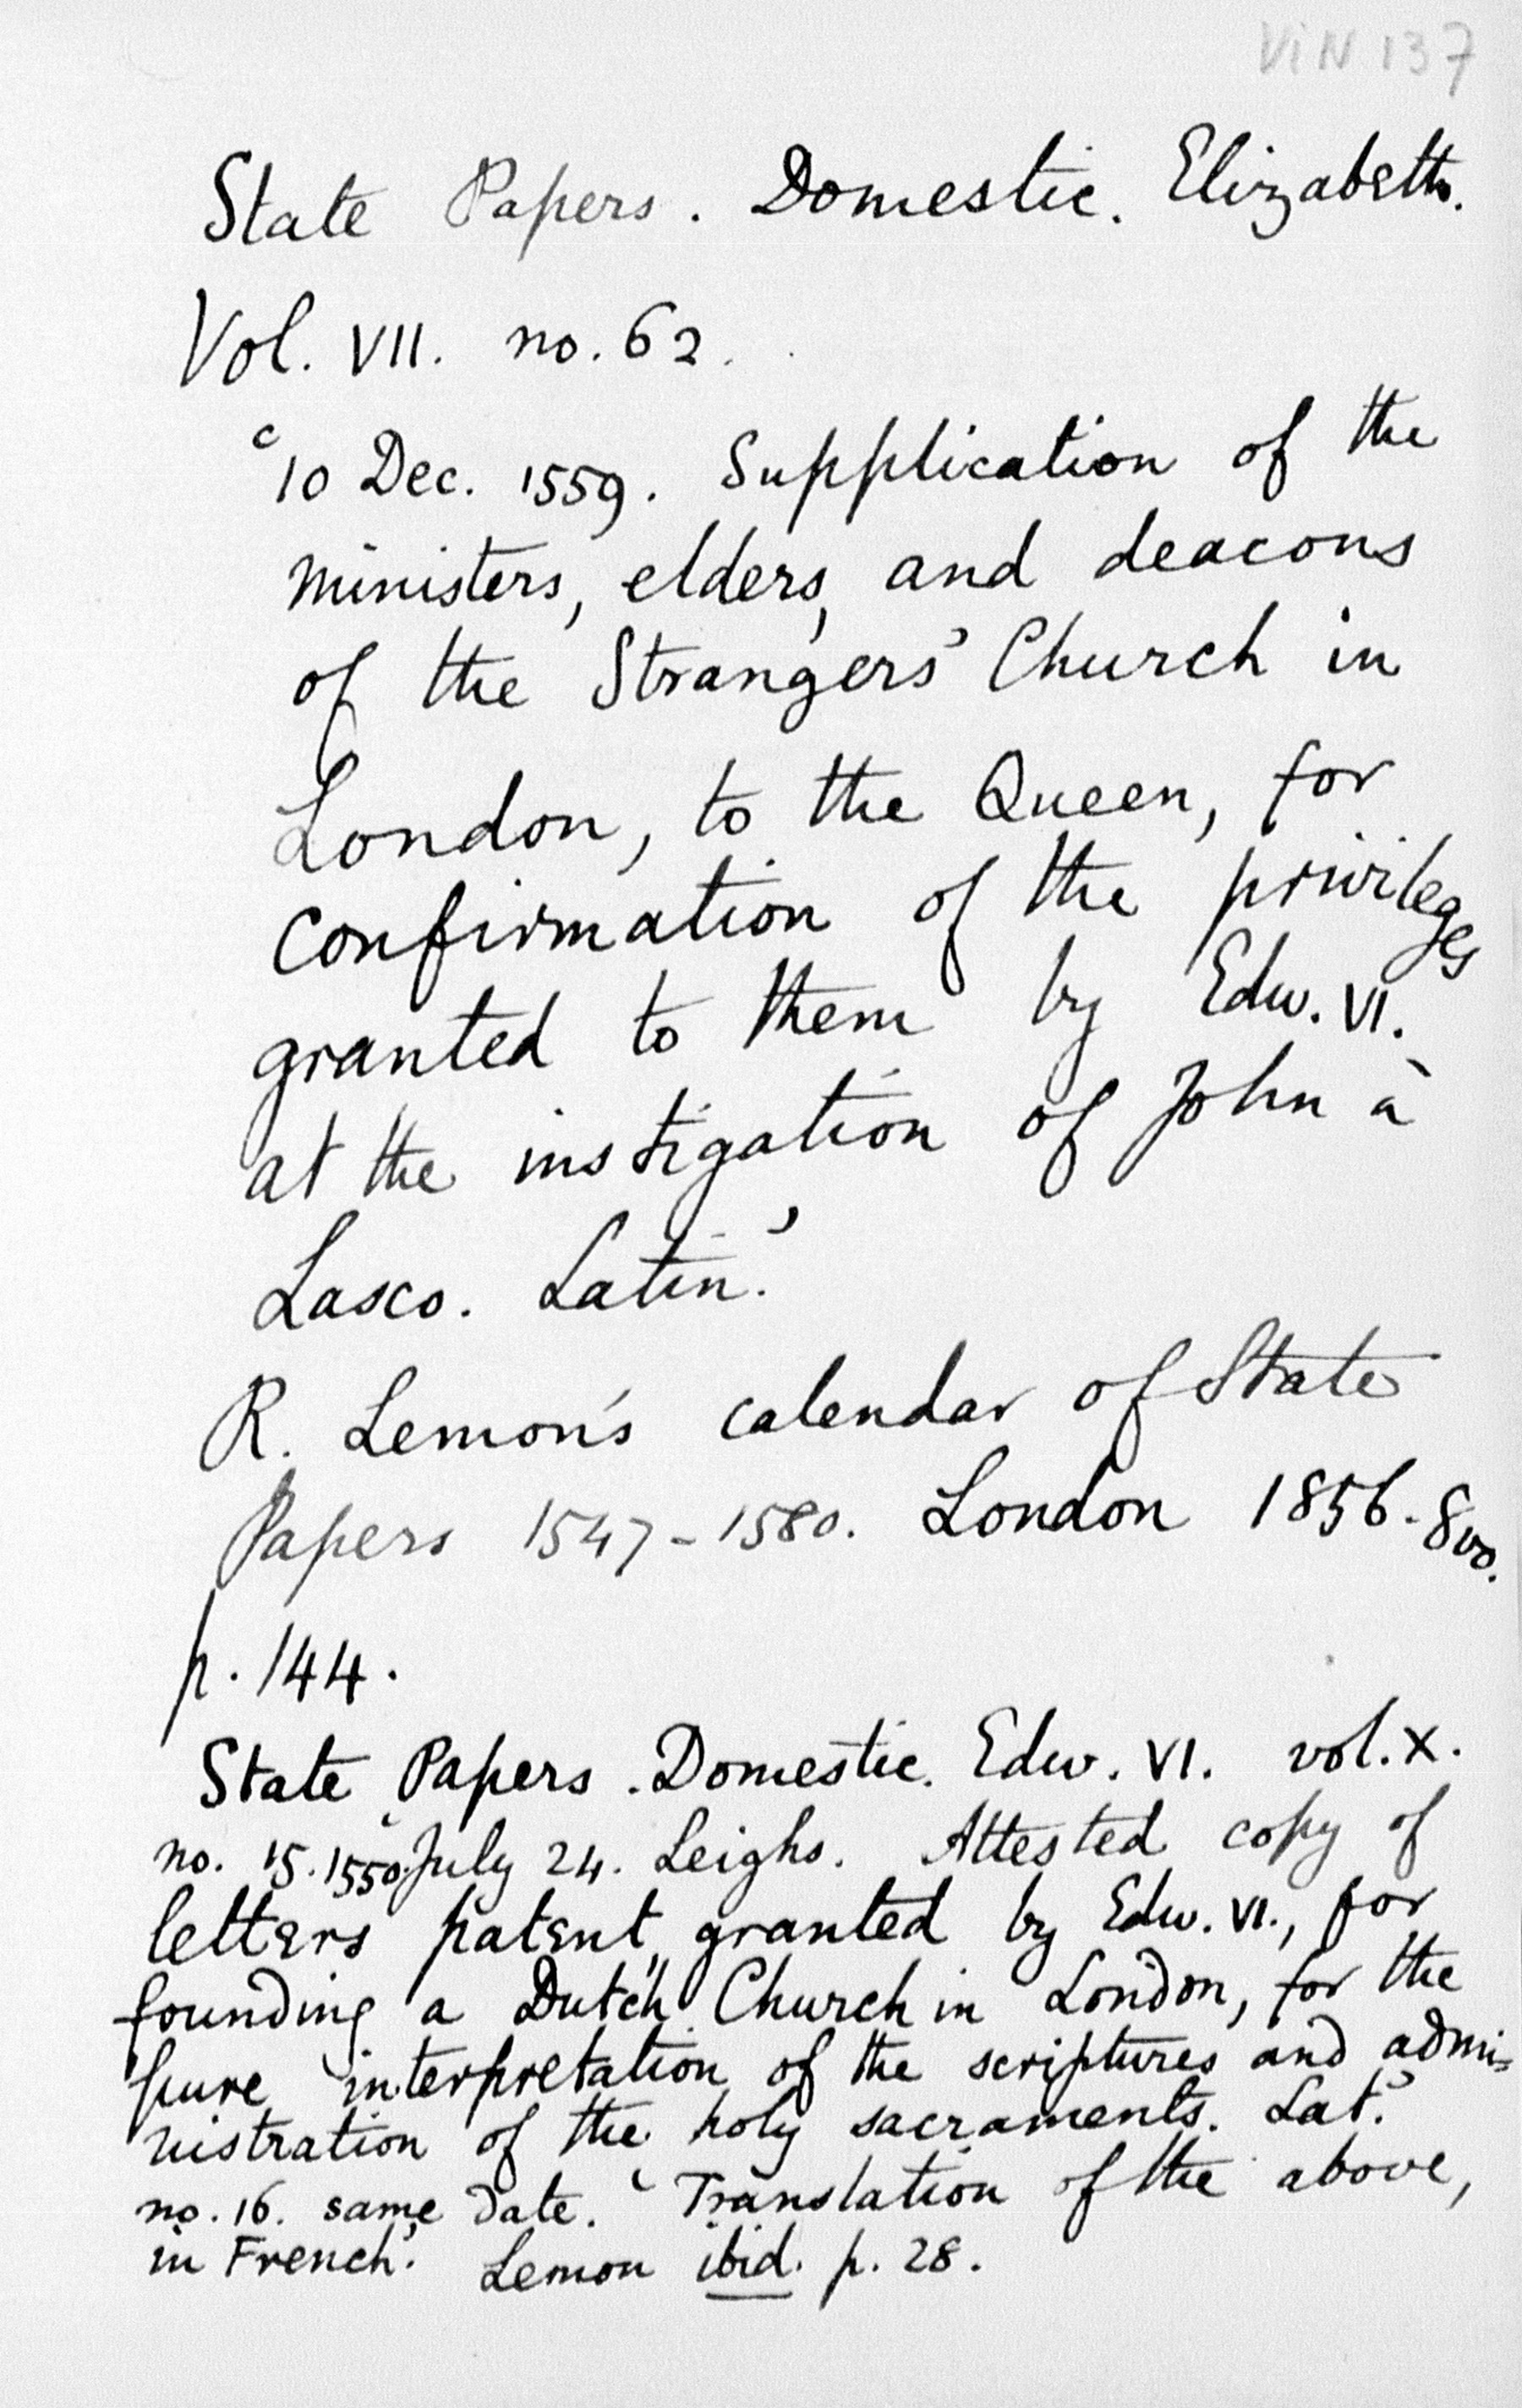 ViN 137
State Papers. Domestic. Elizabeth.
Vol. VII. no. 62.
‘10 Dec. 1559. Supplication of the
ministers, elders, and deacons
of the Strangers’ Church in
London, to the Queen, for
confirmation of the privileges
granted to them by Edw. VI.
at the instigation of John à
Lasco. Latin.’
R. Lemon's calendar of State
Papers 1547-1580. London 1856. 8vo.
p. 144.
State Papers. Domestic. Edw. VI. vol. X.
no. 15. 1550. ‘July 24. Leighs. Attested copy of
letters patent, granted by Edw. VI., for
founding a Dutch Church in London, for the
pure interpretation of the scriptures and admi=
nistration of the holy sacraments. Lat.’
no. 16. same date. ‘Translation of the above,
in French.’ Lemon ibid. p. 28.